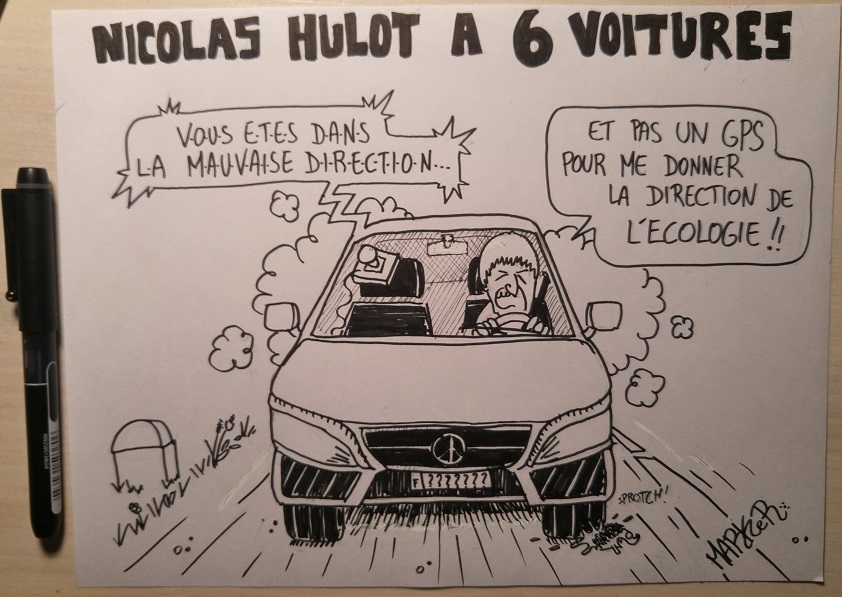 NICOLAS HULOT A 6 VOITURES
VOUS E·T·ES D·A·N·S
LA MAUV·A·ISE D·I·R·E·C·T·I·O·N...
ET PAS UN GPS
POUR ME DONNER
LA DIRECTION DE
L'ECOLOGIE !!
F ???????
SPROTCH!